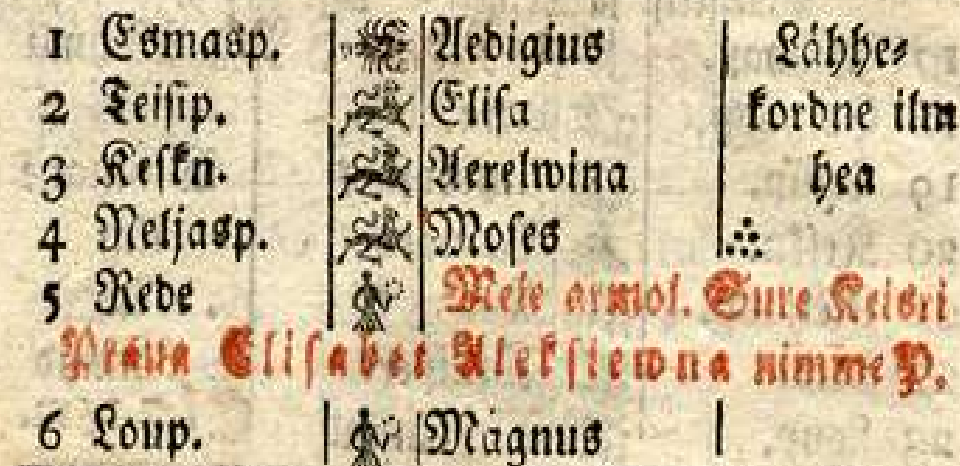 1 Esmasp. Aedigius Lähhe⸗
2 Teisip. Elisa kordne ilm
3 Keskn. Aerelwina hea
4 Neljasp. Moses
5 Rede Meie armol. Sure Keisri
Praua Elisabet Aleksiewna nimme P.
6 Loup. Magnus